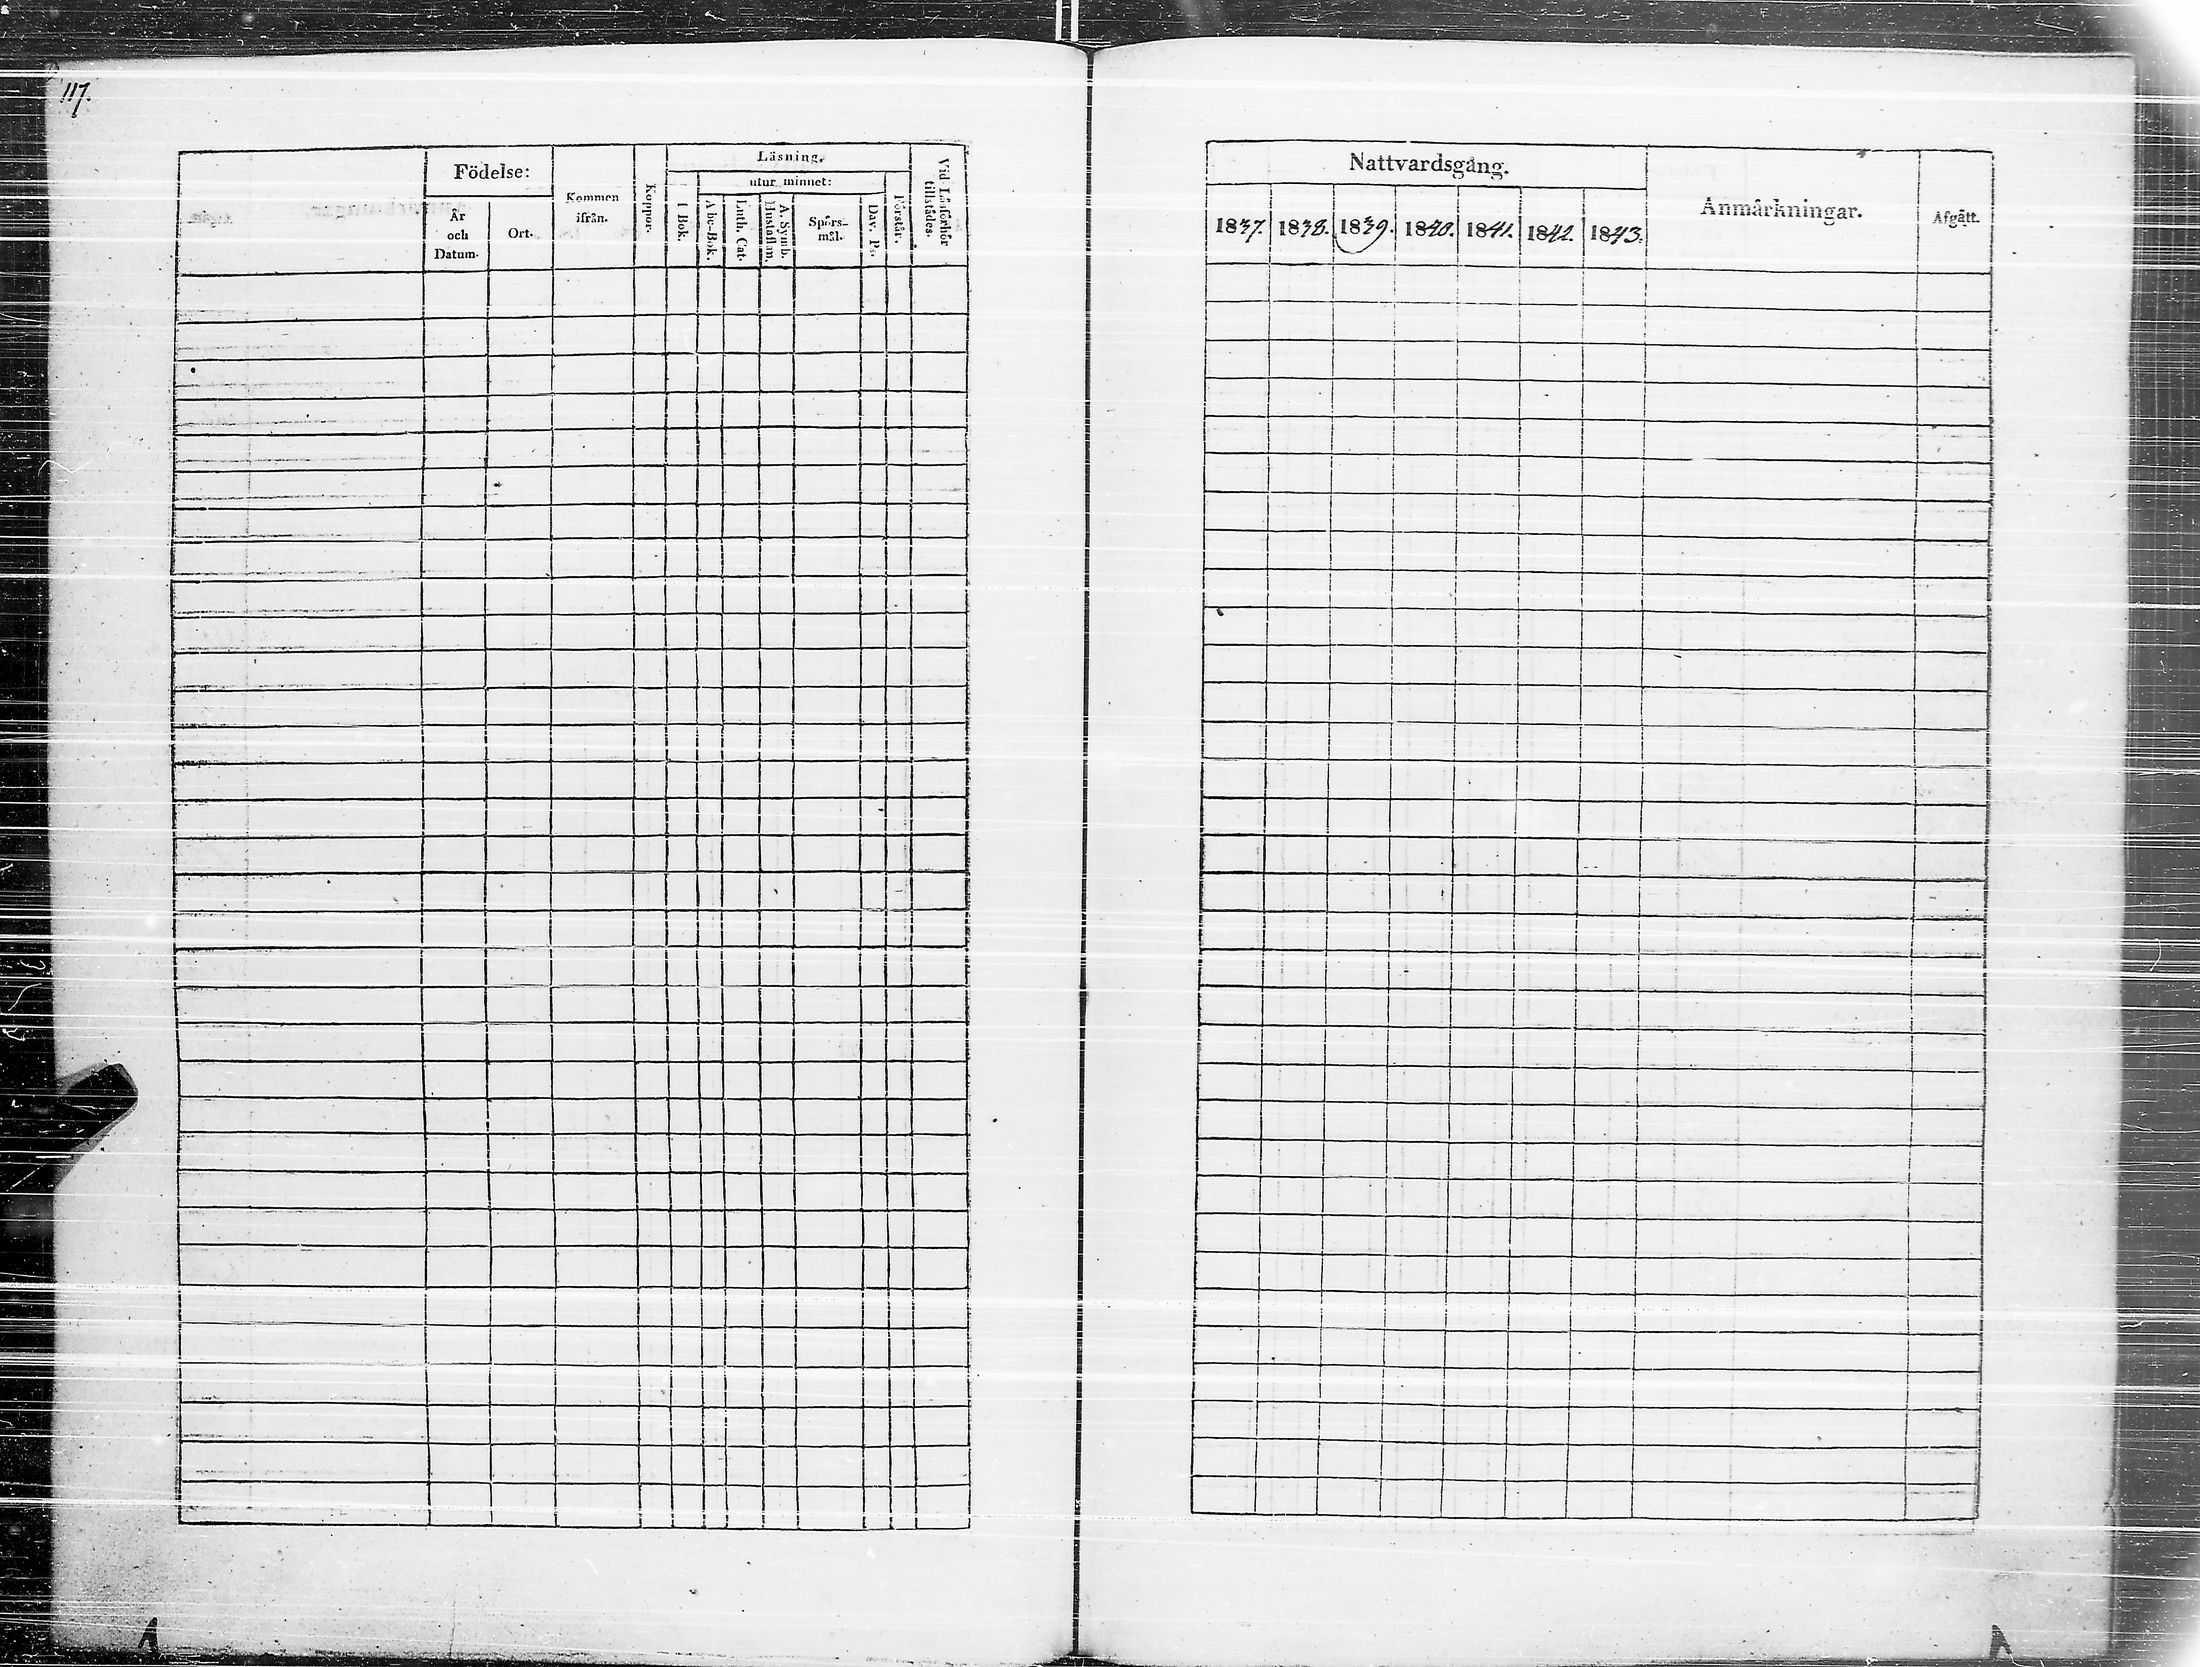 117.
Födelse:
År
och
Datum.
Ort.
Kommen
ifrån.
Koppor.
Läsning.
utur minnet:
I Bok.
Abc-Bok.
Luth. Cat.
A. Symb.
Hustaflan.
Spörs-
mål.
Dav. Ps.
Förstår.
Vid Läsförhör
tillstädes.
Nattvardsgång.
1837. 1838. 1839. 1840. 1841. 1842. 1843.
Anmärkningar.
Afgått.